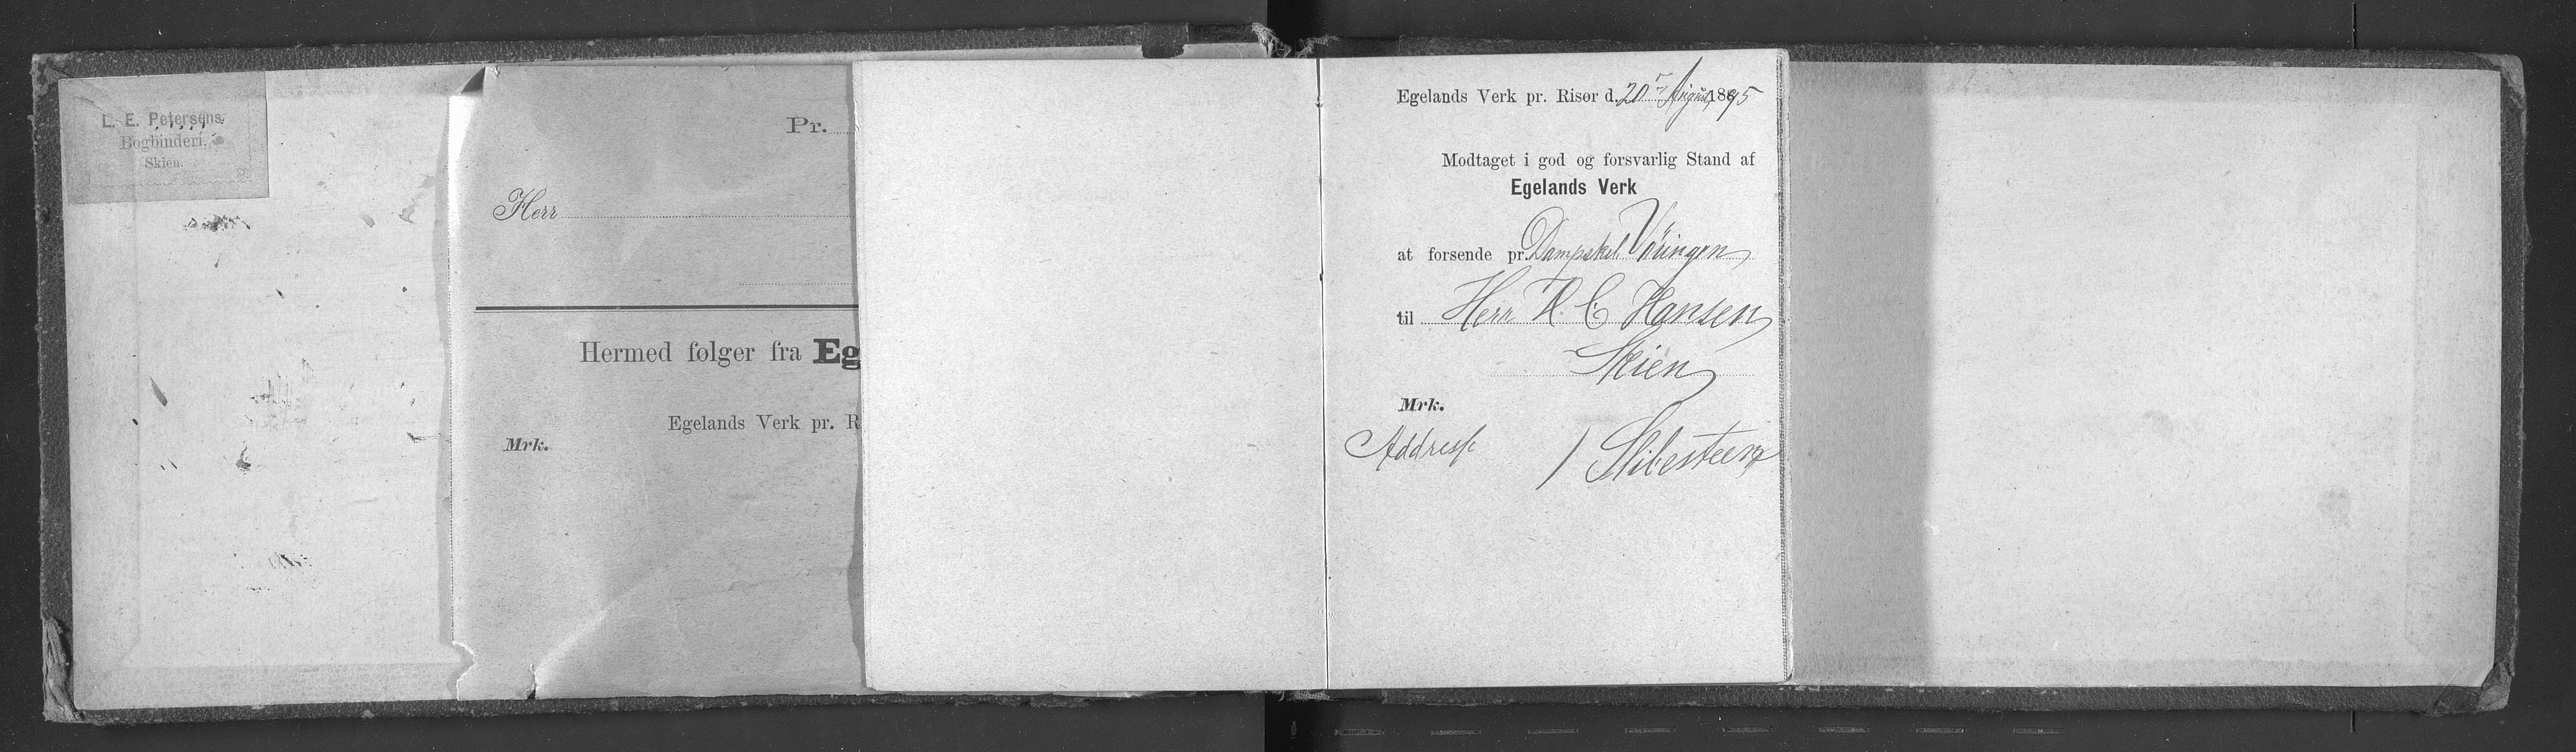 L. E. Petersens
Bogbinderi,
Skien.
Pr.
Herr
Hermed følger fra Eg
Egelands Verk pr. R
Mrk.
Egelands Verk pr. Risør d. 20 August 1895
Modtaget i god og forsvarlig Stand af
Egelands Verk
at forsende pr. Dampsk.
til Herr H. C Hansen
Skien
Mrk.
Addresse 1 Slibesteen